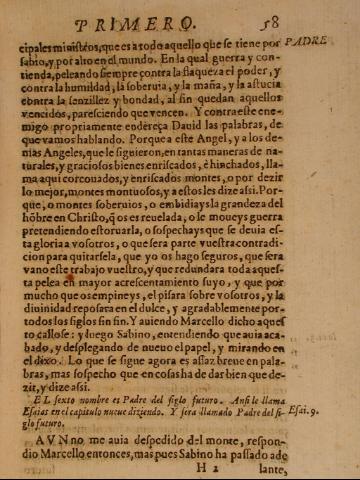 PRIMERO. 58
cipales ministros, que es a todo aquello que se tiene por PADRE
sabio, y por alto en el mundo. En la qual guerra y con-
tienda, peleando siempre contra la flaqueza el poder, y
contra la humildad, la soberuia, y la maña, y la astucia
contra la senzillez y bondad, al fin quedan aquellos
vencidos, paresciendo que vencen. Y contra este ene-
migo propriamente endereça Dauid las palabras, de
que vamos hablando. Porque a este Angel, y a los de-
mas Angeles, que le siguieron, en tantas maneras de na-
turales, y graciosos bienes enriscados, è hinchados, lla-
ma aqui corcouados, y enriscados montes, o por dezir
lo mejor, montes montuosos, y a estos les dize assi. Por-
que, o montes soberuios, o embidiays la grandeza del
hõbre en Christo, q̃ os es reuelada, o le moueys guerra
pretendiendo estoruarla, o sospechays que se deuia es-
ta gloria a vosotros, o que sera parte vuestra contradi-
cion para quitarsela, que yo os hago seguros, que sera
vano este trabajo vuestro, y que redundara toda aques-
ta pelea en mayor acrescentamiento suyo, y que por
mucho que os empineys, el pisara sobre vosotros, y la
diuinidad reposara en el dulce, y agradablemente por
todos los siglos sin fin. Y auiendo Marcello dicho aques
to callose: y luego Sabino, entendiendo que auia aca-
bado, y desplegando de nueuo el papel, y mirando en
el dixo. Lo que se sigue agora es assaz breue en pala-
bras, mas sospecho que en cosas ha de dar bien que de-
zir, y dize assi.
EL sexto nombre es Padre del siglo futuro. Ansi le llama
Esaias en el capitulo nueue diziendo. Y sera llamado Padre del si- Esai. 9.
glo futuro.
AVN no me auia despedido del monte, respon-
dio Marcello entonces, mas pues Sabino ha passado ade
H 2 lante,